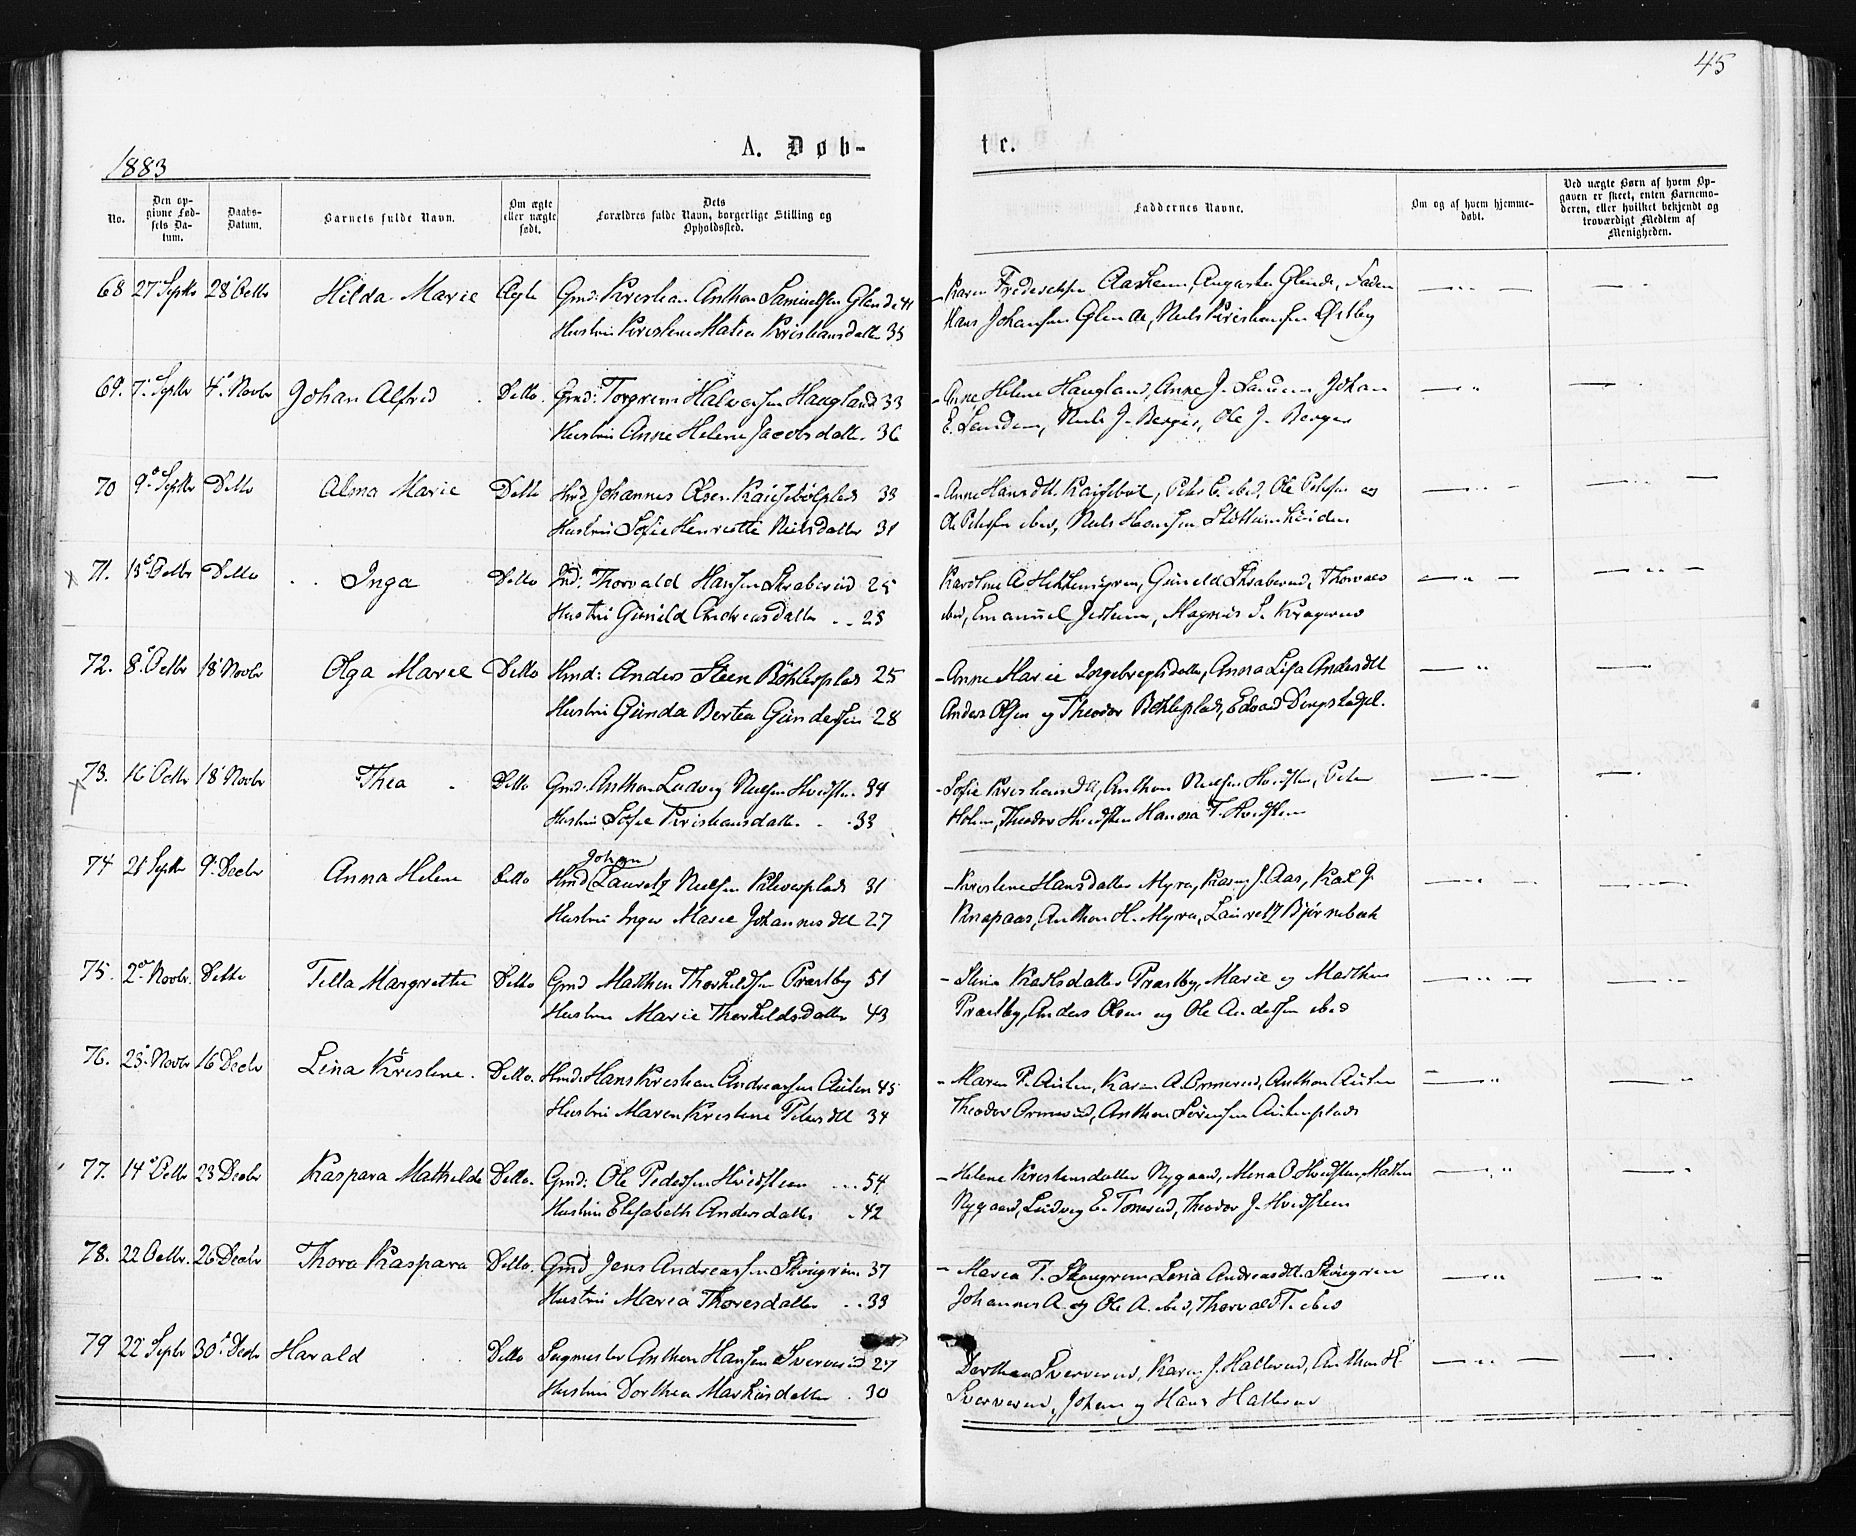 45
1883
A. Døb-
te.
No.
Den op-
givne Fød-
sels Da-
tum.
Daabs-
Datum.
Barnets fulde Navn.
Om ægte
eller uægte
født.
Dets
Forældres fulde Navn, borgerlige Stilling og
Opholdssted.
Faddernes Navne.
Om og af hvem hjemme-
døbt.
Ved uægte Børn af hvem Op-
gaven er skeet, enten Barnemo-
deren, eller hvilket bekjendt og
troværdigt Medlem af
Menigheden.
68 27 Septbr 28 Octbr Hilda Marie Ægte Gmd: Kristian Anthon Samuelsen Glende 41
Hustru Kristine Matea Kristiansdatter 33
Karen Frederiksen Aaskenn, Augusta Glende, Faderen
Hans Johansen Glende, Niels Kristiansen Østby
69. 7. Septbr 4. Novbr Johan Alfred Ditto. Gmd: Torgrim Halvorsen Haugland 33
Hustru Anne Helene Jacobsdatter. 36
Anne Helene Haugland, Anne J. Sanden, Johan
E. Sanden, Niels J. Berger, Ole J. Berger
70 9. Septbr Ditto Alma Marie Ditto Hmd Johannes Olsen Kaisebølplads 33
Hustru Sofie Henriette Nielsdatter 31
Anne Hansdtt. Kaisebøl, Peter E. ibid, Ole Petersen og
Ole Petersen ibid, Niels Hansen
71. 13. Octbr Ditto Inga Ditto Thorvald Hansen Skraberud 25
Hustru Gunild Andreasdatter .. 25
Karoline A. Gunild Skraberud, Thorvald
ibid, Emanuel Magnus S. Kragerud
72. 8. Octbr 18 Novbr Olga Marie Ditto Hmd: Anders Steen Böhlerplads 25
Hustru Gunda Bertea Gundersen 28
Anne Marie Ingebregtsdatter, Anna Lisa Andersdtt
Anders Olsen og Theodor Böhlerplads, Edvard
73. 16 Octbr 18 Novbr Thea Ditto Gmd: Anthon Ludvig Nielsen Hvidsten 34
Hustru Sofie Kristiansdatter . . 33
Sofie Kristiansdtt, Anthon Nielsen Hvidsten, Peter
Holm, Theodor Hvidsten Hanna T. Hvidsten
74 21 Septbr 9. Decbr Anna Helene Ditto Hmd Johan Lauretz Nielsen Kleverplads 31
Hustru Inger Marie Johannesdtt 27
Kristine Hansdatter Myra, Karen J. Aas, Karl J.
Knapaas, Anthon H. Myra, Lauretz Bjørnebek
75. 2. Novbr. Ditto Tilla Margrethe Ditto Gmd Mathen Thorkildsen Præstby 51
Hustru Marie Thorkildsdatter 43
Stina Karlsdatter Præstby, Marie og Mathen
Præstby, Anders Olsen og Ole Andersen ibid
76. 23. Novbr 16 Decbr Lina Kristine. Ditto. Hmd: Hans Kristian Andreassen Auten 45
Hustru Maren Kristine Petersdtt 34
Maren P. Auten, Karen A. Ormerud, Anthon Auten
Theodor Ormerud, Anthon Sørensen Autenplads
77. 14. Octbr 23 Decbr Kaspara Mathilde Ditto. Gmd: Ole Pedersen Hvidsteen ... 54.
Hustru Elisabeth Andersdatter .42
Helene Kristensdatter Nygaard, Mina O. Hvidsten, Mathen
Nygaard, Ludvig E. Tomerud, Theodor J. Hvidsteen
78. 22 Octbr. 26 Decbr Thora Kaspara Ditto. Gmd Jens Andreassen Skougrim 37
Hustru Maria Thoresdatter .. 33
Maria T. Skougrim, Lina Andreasdtt. Skougrim
Johannes A. og Ole A. ibid, Thorvald T. ibid
79 22 Septbr 30. Decbr Harald Ditto Sagmester Anthon Hansen Sververud 27
Hustru Dorthea Markusdatter . 30
Dorthea Sververud, Karen J. Hallerud, Anthon H.
Sververud, Johan og Hans Hallerud